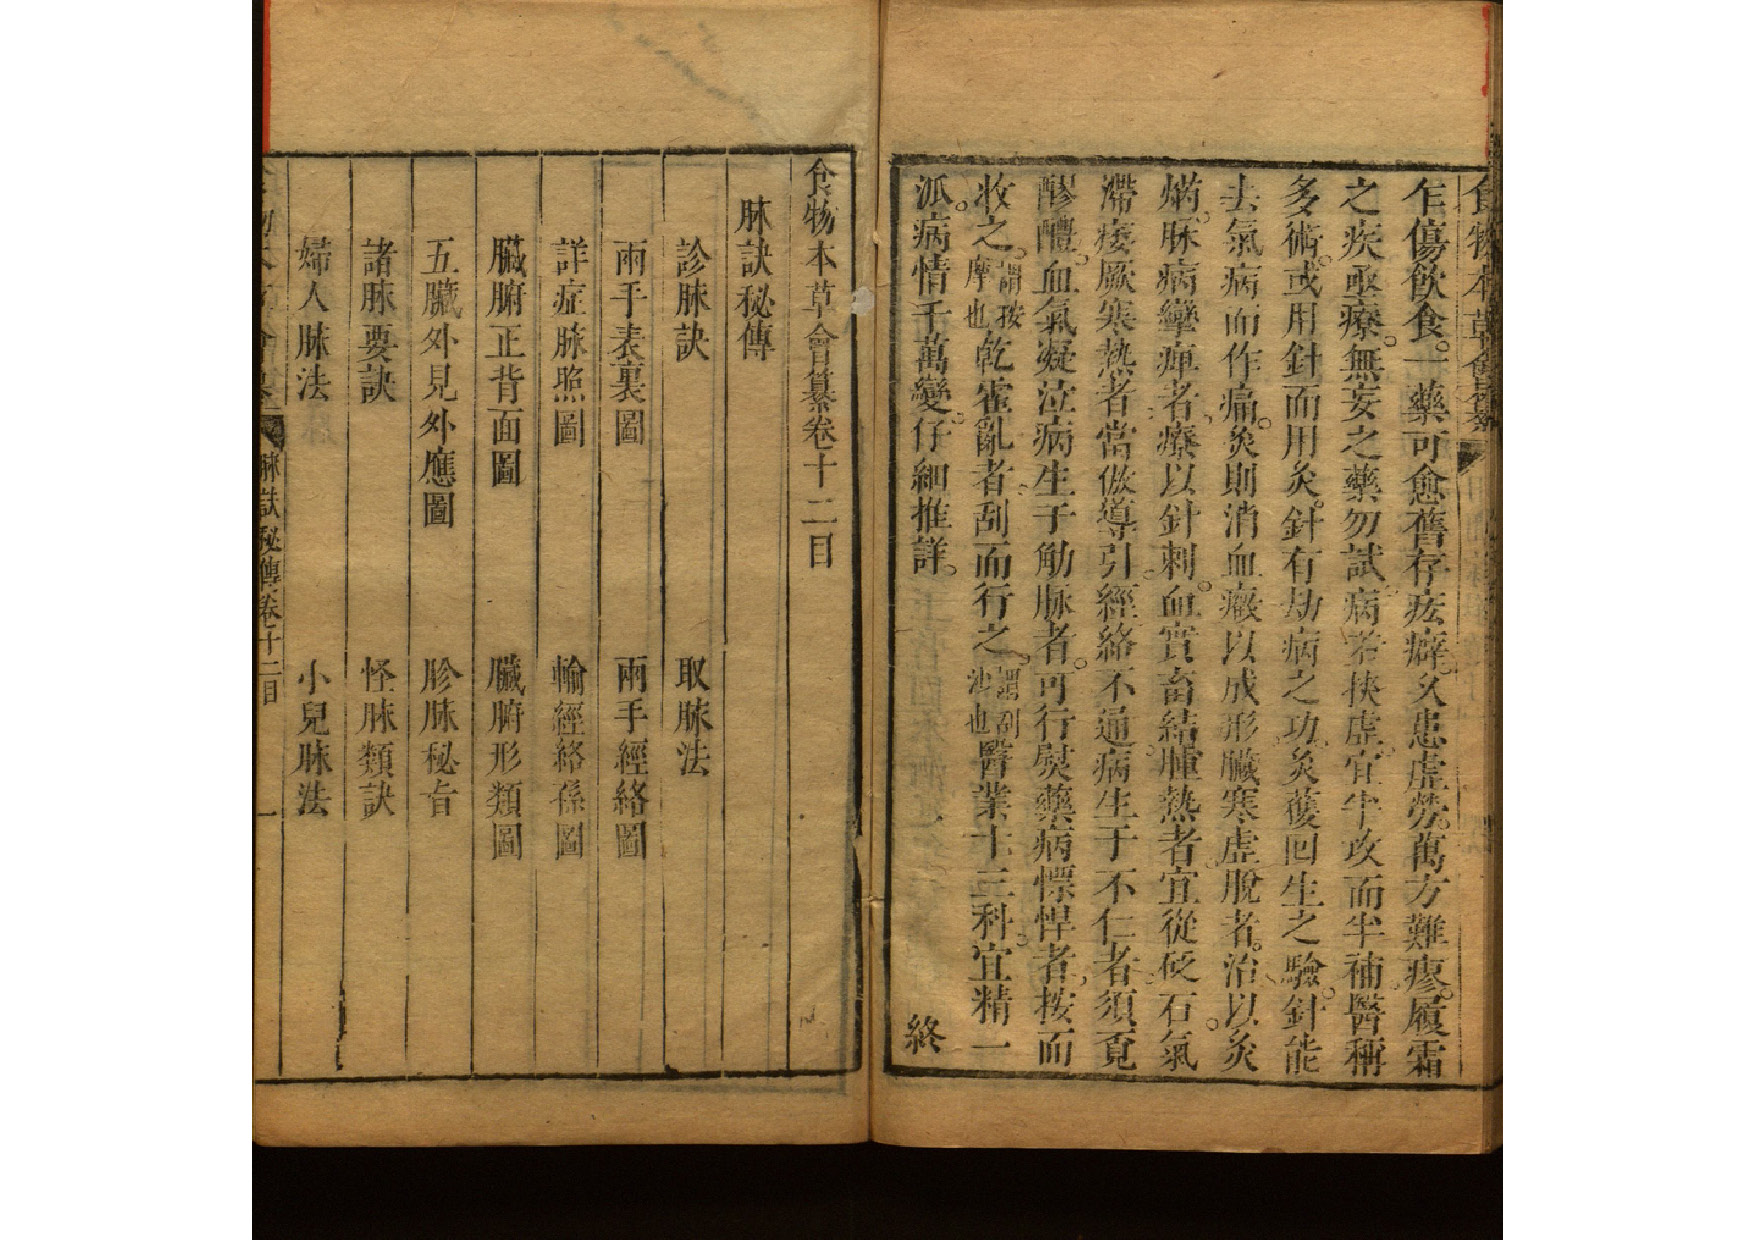 食物本草會纂
乍傷飲食。一藥可愈舊存痃癖。久患虛勞。萬方難瘳。履霜
之疾亟療。無妄之藥勿試。病若挾虛。宜半攻而半補醫稱
多術。或用針而用灸。針有劫病之功。灸獲回生之驗。針能
去氣病而作痛。灸則消血癥以成形臟寒虛脫者。治以灸
焫。脉病攣痺者。療以針刺。血實畜結腫熱者。宜從砭石。氣
滯痿厥寒熱者。當倣導引。經絡不通。病生于不仁者。須覔
醪醴。血氣凝泣病生于觔脈者。可行熨藥。病慓悍者。按而
收之。謂按摩也乾霍亂者。刮而行之。謂刮沙也醫業十三科。宜精一
派。病情千萬變。仔細推詳。 終
食物本草會纂卷十二目
脉訣秘傳
診脉訣 取脉法
兩手表裏圖 兩手經絡圖
詳症脉照圖 輸經絡孫圖
臟腑正背面圖 臟腑形類圖
五臟外見外應圖 胗脉秘旨
諸脉要訣 怪脉類訣
婦人脉法 小兒脉法
脉訣秘傳卷十二目 一